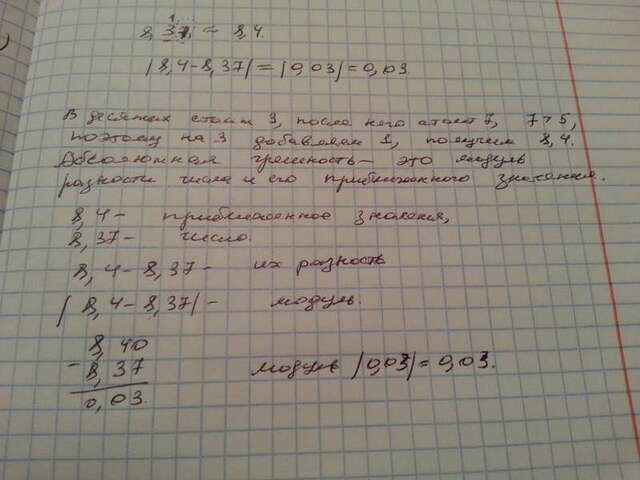 8,37 ≈ 8,4.
|8,4-8,37| = |0,03| = 0,03.
В десятых стоит 3, после него стоит 7, 7>5,
поэтому на 3 добавляем 1, получим 8,4.
Абсолютная грешность- это модуль
разности числа и его приближенного значения.
8,4- приближенное значения,
8,37- число.
8,4-8,37- их разность
|8,4-8,37|- модуль.
8,40
- 8,37
0,03.
модуль |0,03| = 0,03.